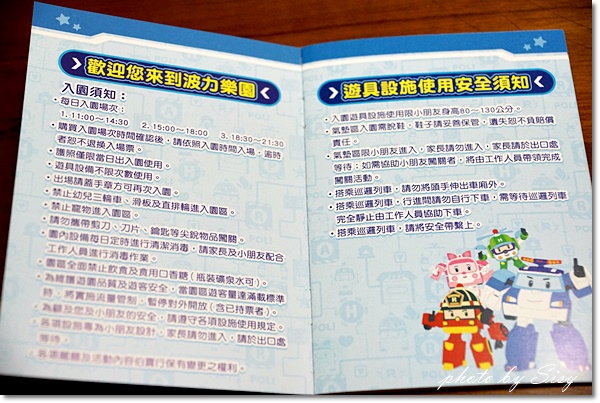 歡迎您來到波力樂園
入園須知：
•每日入園場次：
1. 11:00~14:30 2. 15:00~18:00 3. 18:30~21:30
•購買入園場次時間確認後，請依照入園時間入場，逾時
者恕不退換入場票。
•護照僅限當日出入園使用。
•遊具設備不限次數使用。
•出場請蓋手章方可再次入園。
•禁止幼兒三輪車、滑板及直排輪進入園區。
•禁止寵物進入園區。
•請勿攜帶剪刀、刀片、鑰匙等尖銳物品闖關。
•園內設備每日定時進行清潔消毒，請家長及小朋友配合
工作人員進行消毒作業。
•園區全面禁止飲食及食用口香糖（瓶裝礦泉水可）。
•為維護遊園品質及遊客安全，當園區遊客量達滿載標準
時，將實施流量管制，暫停對外開放（含已持票者）。
•為顧及您及小朋友的安全，請遵守各項設施使用規定。
•各項設施專為小朋友設計，家長請勿進入，請於出口處
等待。
•各項驚喜及活動內容伯寶行保有變更之權利。
遊具設施使用安全須知
•入園遊具設施使用限小朋友身高80~130公分。
•氣墊區入園需脫鞋，鞋子請妥善保管，遺失恕不負賠償
責任。
•氣墊區限小朋友進入，家長請勿進入，家長請於出口處
等待；如需協助小朋友闖關者，將由工作人員帶領完成
闖關活動。
•搭乘巡邏列車，請勿將頭手伸出車廂外。
•搭乘巡邏列車，行進間請勿自行下車，需等待巡邏列車
完全靜止由工作人員協助下車。
•搭乘巡邏列車，請將安全帶繫上。
photo by Sisy